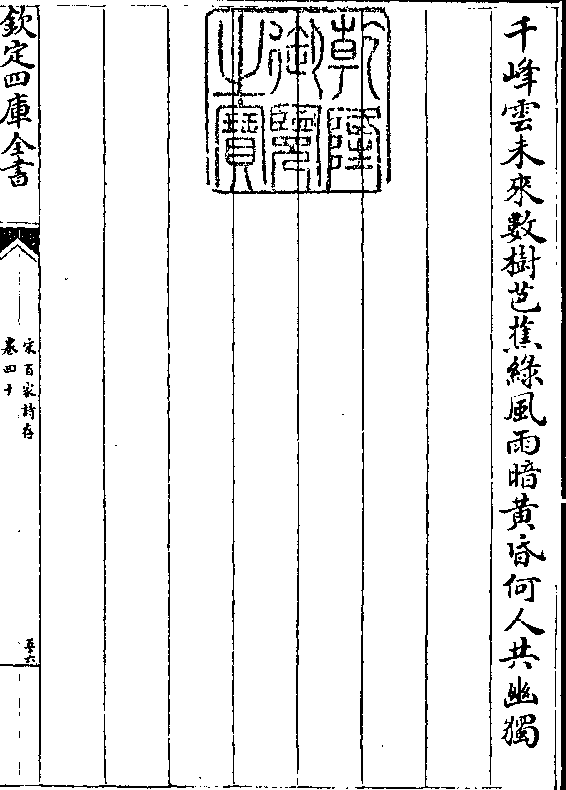 千峰雲未來數樹芭蕉綠風雨暗黃昏何人共幽獨
乾隆
御覽
之寶
欽定四庫全書
宋百家詩存
卷四十
五六